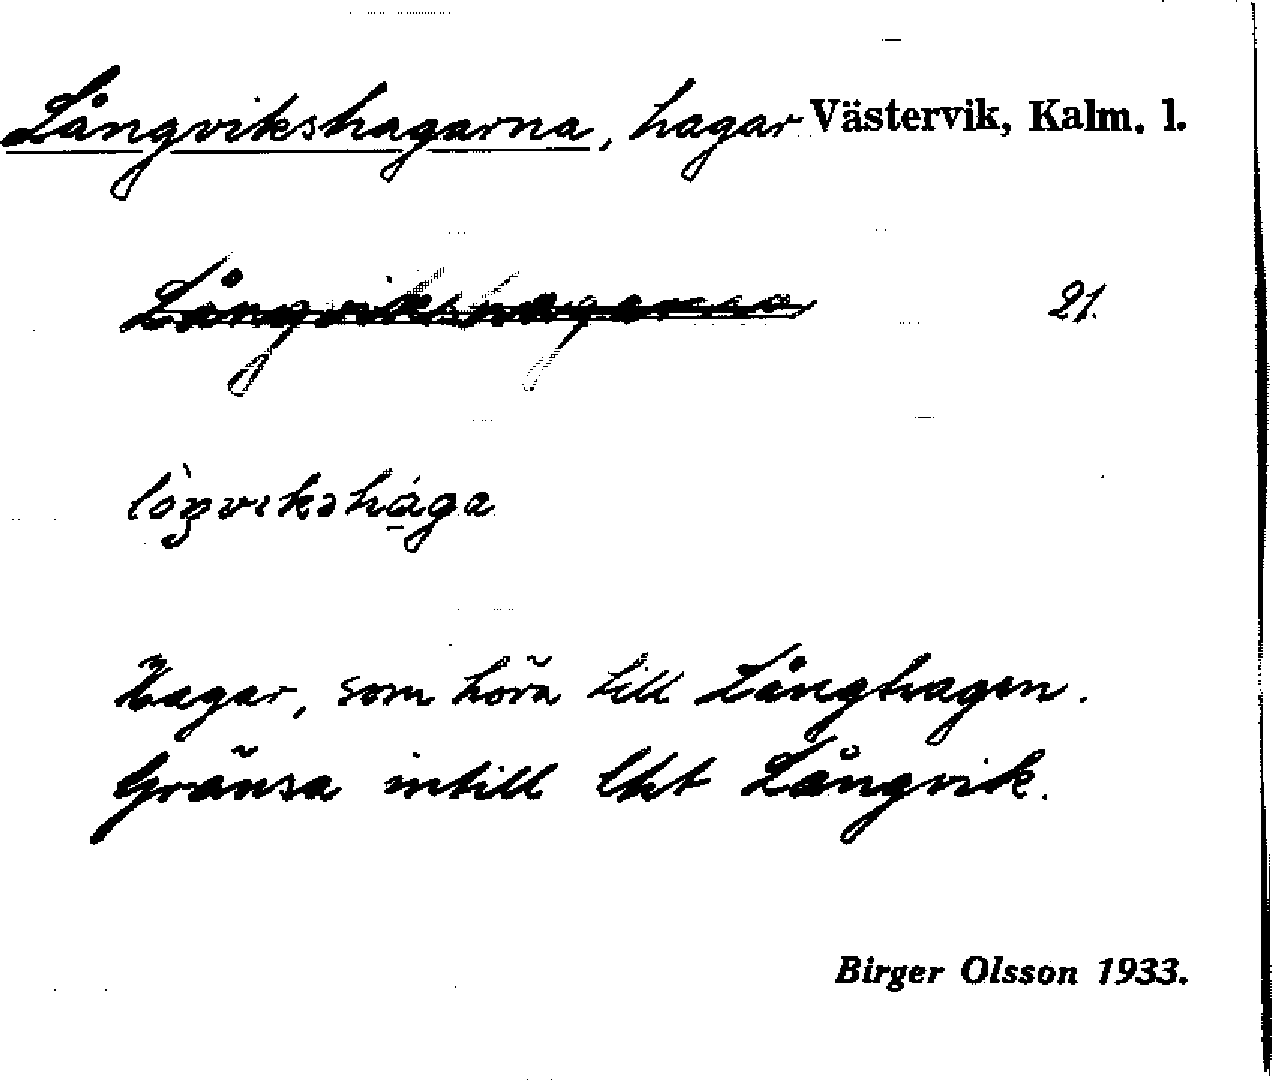 Långvikshagarna, hagar Västervik, Kalm. l.
Långvikshagarna 21.
Hagar, som höra till Långhagen.
Gränsa intill Lht Långvik.
Birger Olsson 1933.